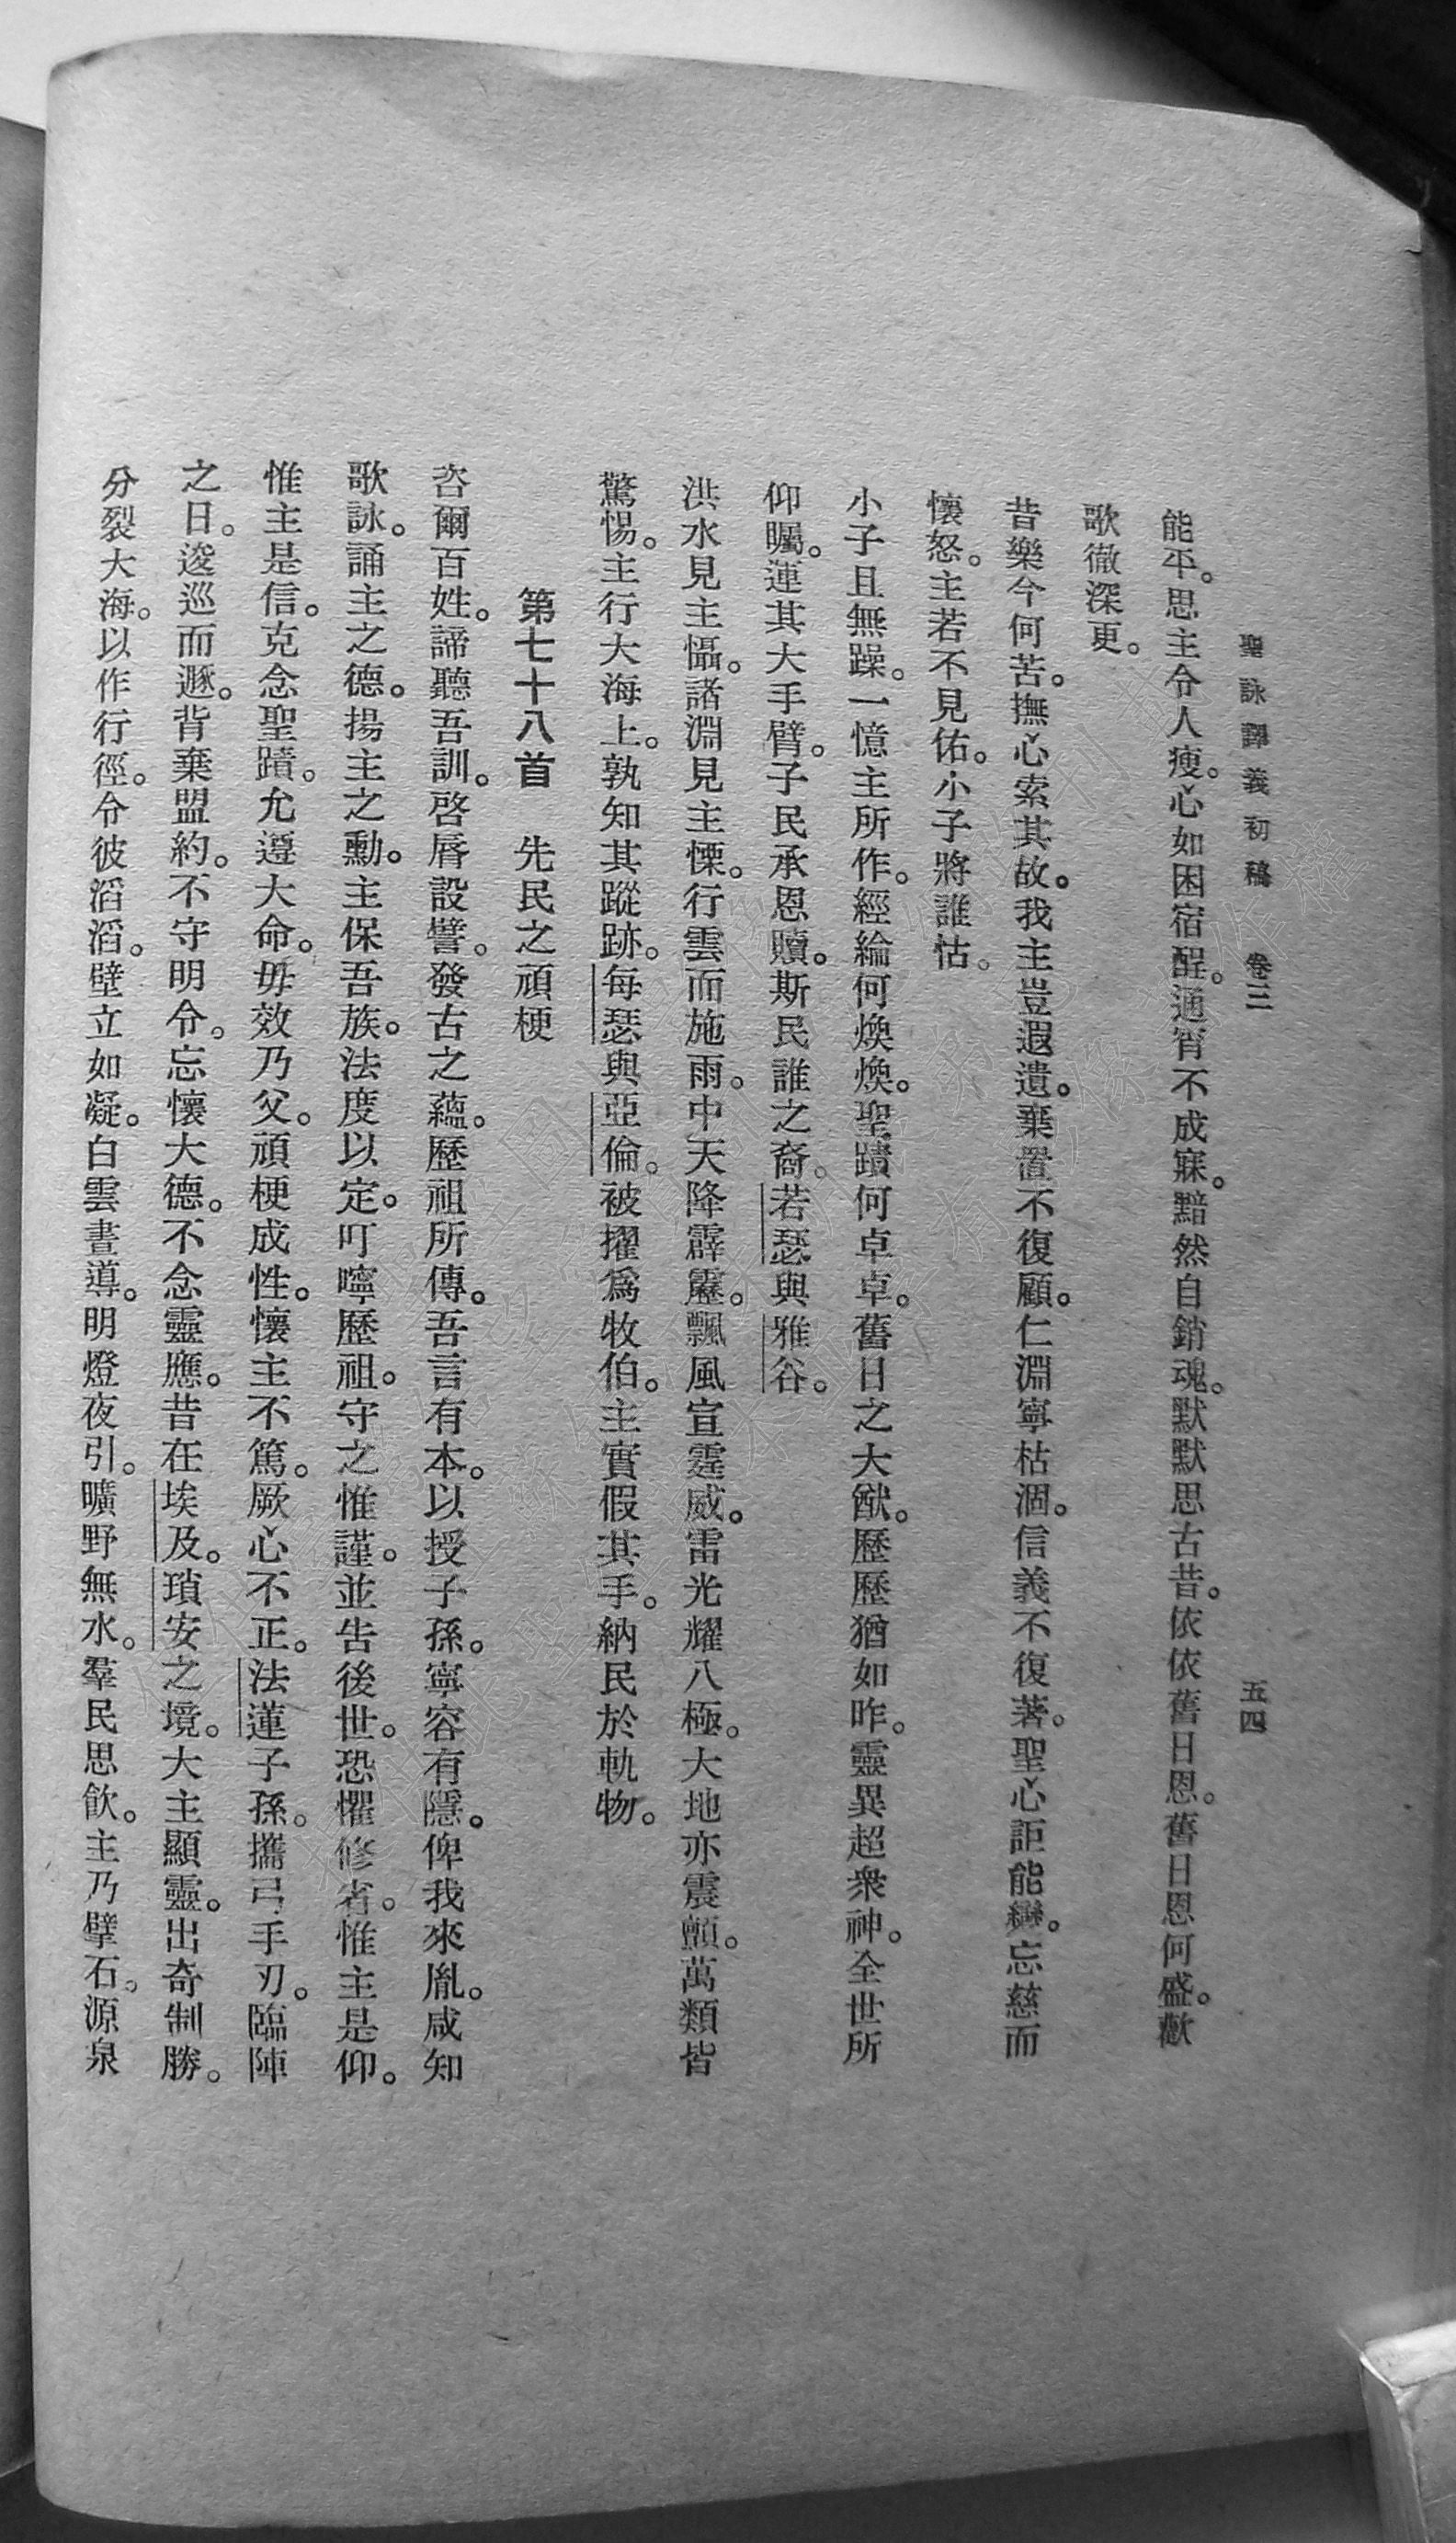 聖詠譯義初稿　卷三　五四
能平。思主令人瘦。心如困宿酲。通宵不成寐。黯然自銷魂。默默思古昔。依依舊日恩。舊日恩何盛。歡
歌徹深更。
昔樂今何苦。撫心索其故。我主豈遐遺。棄置不復顧。仁淵寧枯涸。信義不復著。聖心詎能變。忘慈而
懷怒。主若不見佑。小子將誰怙。
小子且無躁。一憶主所作。經綸何煥煥。聖蹟何卓卓。舊日之大猷。歷歷猶如昨。靈異超衆神。全世所
仰矚。運其大手臂。子民承恩贖。斯民誰之裔。若瑟與雅谷。
洪水見主懾。諸淵見主慄。行雲而施雨。中天降霹靂。飄風宣霆威。雷光耀八極。大地亦震顫。萬類皆
驚惕。主行大海上。孰知其蹤跡。每瑟與亞倫。被擢爲牧伯。主實假其手。納民於軌物。
第七十八首　先民之頑梗
咨爾百姓。諦聽吾訓。啓脣設譬。發古之蘊。歷祖所傳。吾言有本。以授子孫。寧容有隱。俾我來胤。咸知
歌詠。誦主之德。揚主之勳。主保吾族。法度以定。叮嚀歷祖。守之惟謹。並吿後世。恐懼修省。惟主是仰。
惟主是信。克念聖蹟。允遵大命。毋效乃父。頑梗成性。懷主不篤。厥心不正。法蓮子孫。攜弓手刃。臨陣
之日。逡巡而遯。背棄盟約。不守明令。忘懷大德。不念靈應。昔在埃及。瑣安之境。大主顯靈。出奇制勝。
分裂大海。以作行徑。令彼滔滔。壁立如凝。白雲晝導。明燈夜引。曠野無水。羣民思飲。主乃擘石。源泉